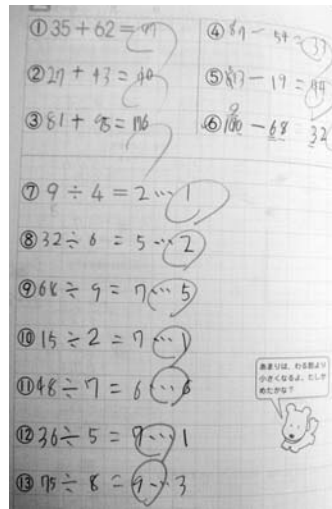 ①35+62=97
②27+43=70
③81+95=176
④87-54=33
⑤813-19=
⑥100-68 32
⑦9÷4=2…1
⑧32÷6=5…2
⑨68÷9=7…5
⑩15÷2=7…1
⑪48÷7=6…6
⑫36÷5=7…1
⑬75÷8=9…3
あまりは、わる数より
小さくなるよ。たしか
めたかな?